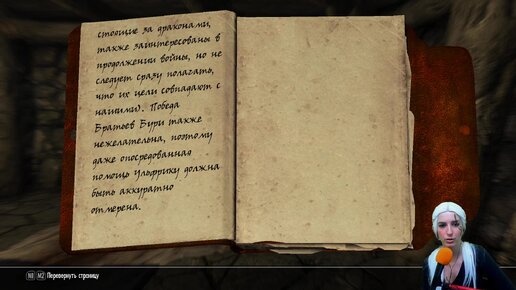 стоящие за драконами,
также заинтересованы в
продолжении войны, но не
следует сразу полагать,
что их цели совпадают с
нашими). Победа
Братьев Бури также
нежелательна, поэтому
даже опосредованная
помощь Ульфрику должна
быть аккуратно
отмерена.
M2 Перевернуть страницу